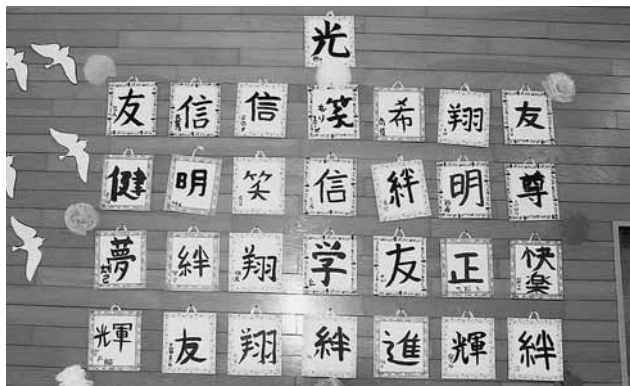 光
友 信 信 笑 希 翔 友
健 明 笑 信 絆 明 尊
夢 絆 翔 学 友 正 快楽
光軍 友 翔 絆 進 輝 絆